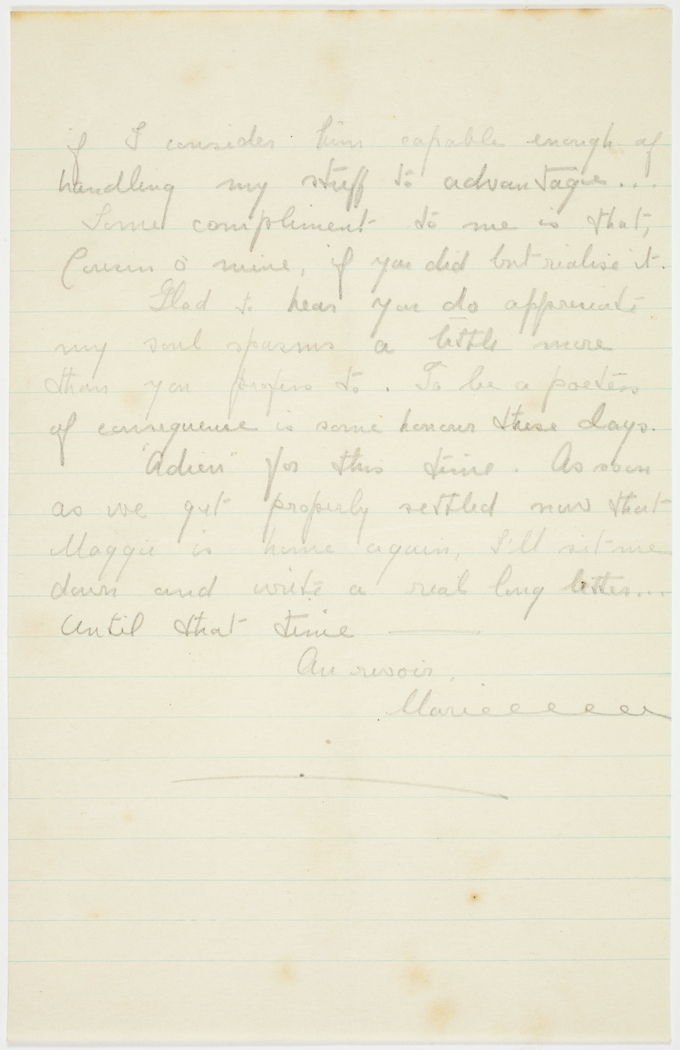 if I consider him capable enough of
handling my stuff to advantage...
Some compliment to me is that,
Cousin o' mine, if you did but rialise it.
Glad to hear you do appreciate
my soul spasms a little more
than you profess to. To be a poetess
of consequence is some honour these days.
"Adieu" for this time. As soon
as we get properly settled now that
Maggie is home again, I'll sit me
down and write a real long letter...
Until that time ———
Au revoir,
Marieeeeee